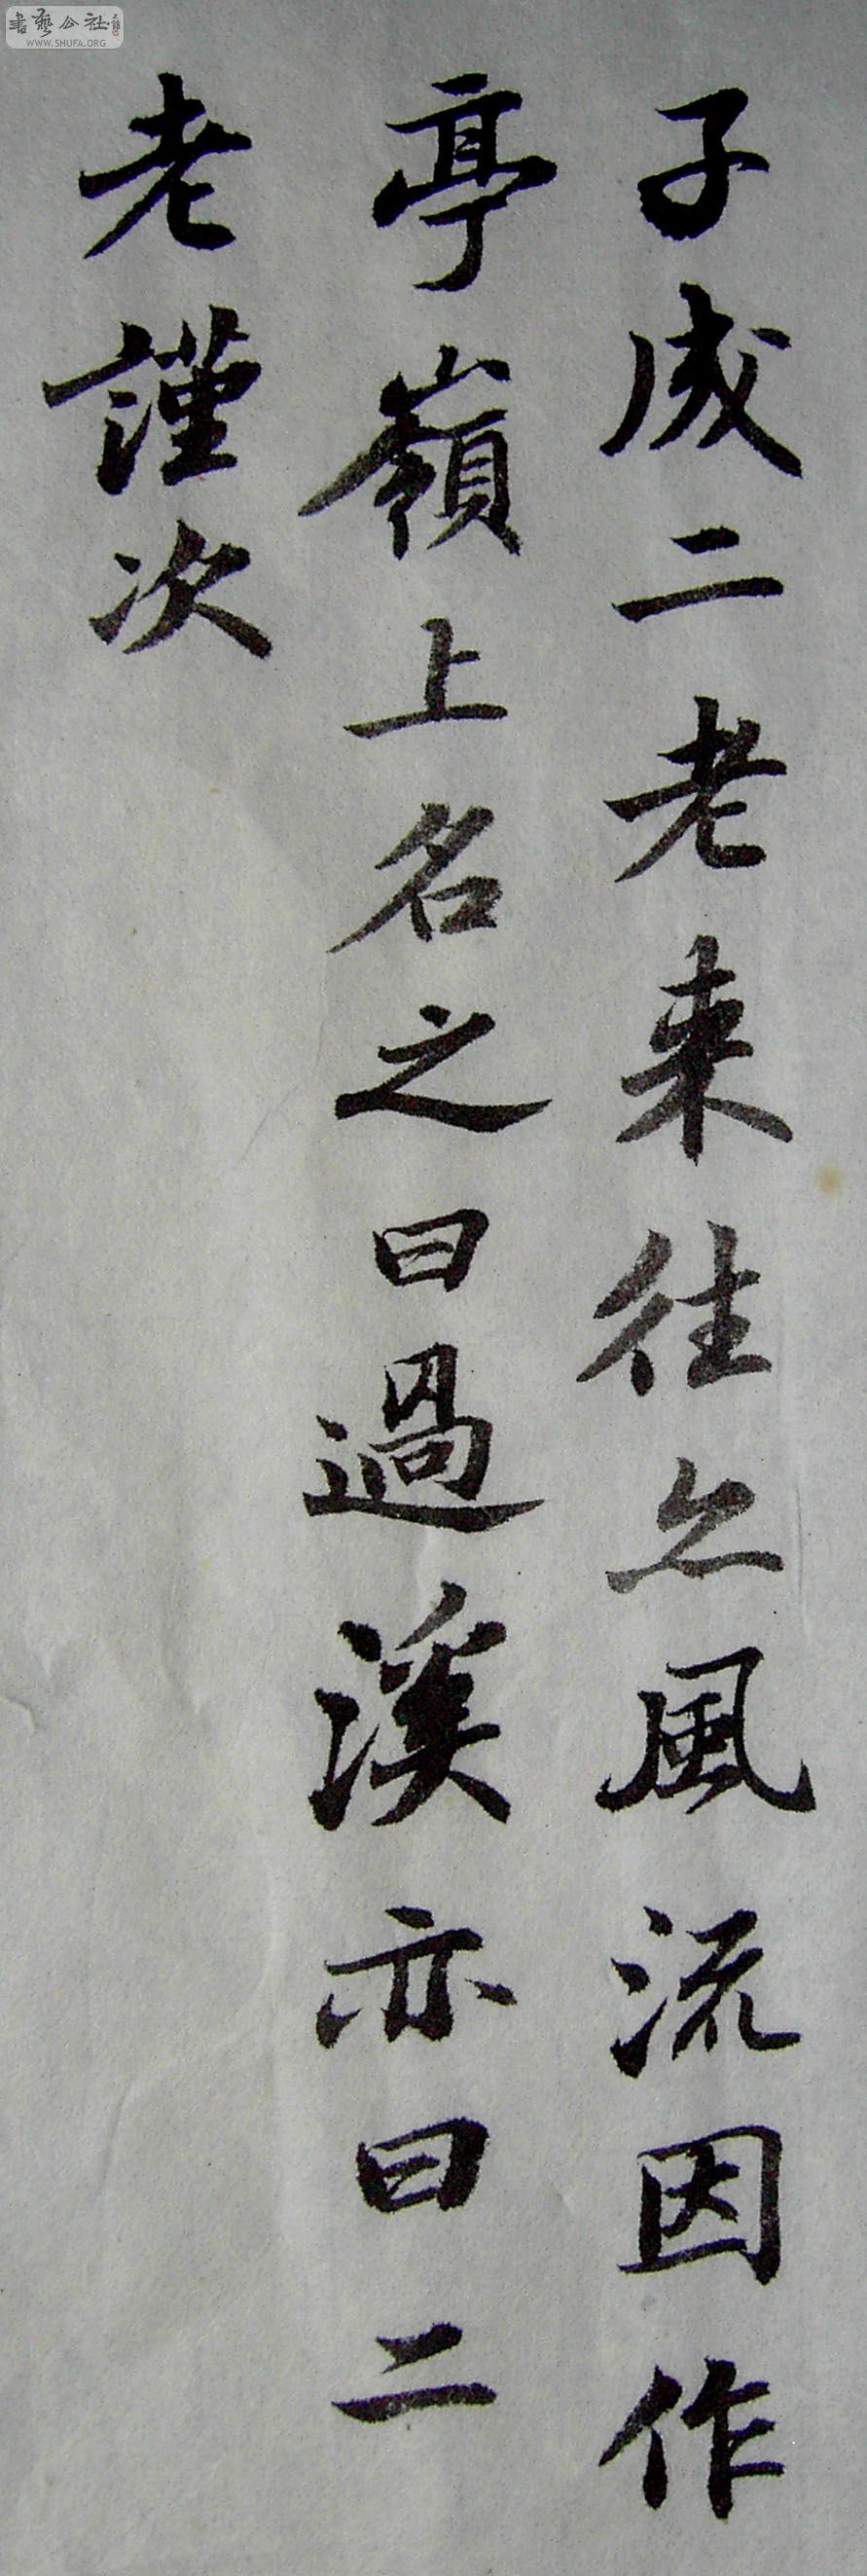 子成二老来往亦風流因作
亭嶺上名之曰過溪亦曰二
老謹次
書藝公社
WWW.SHUFA.ORG